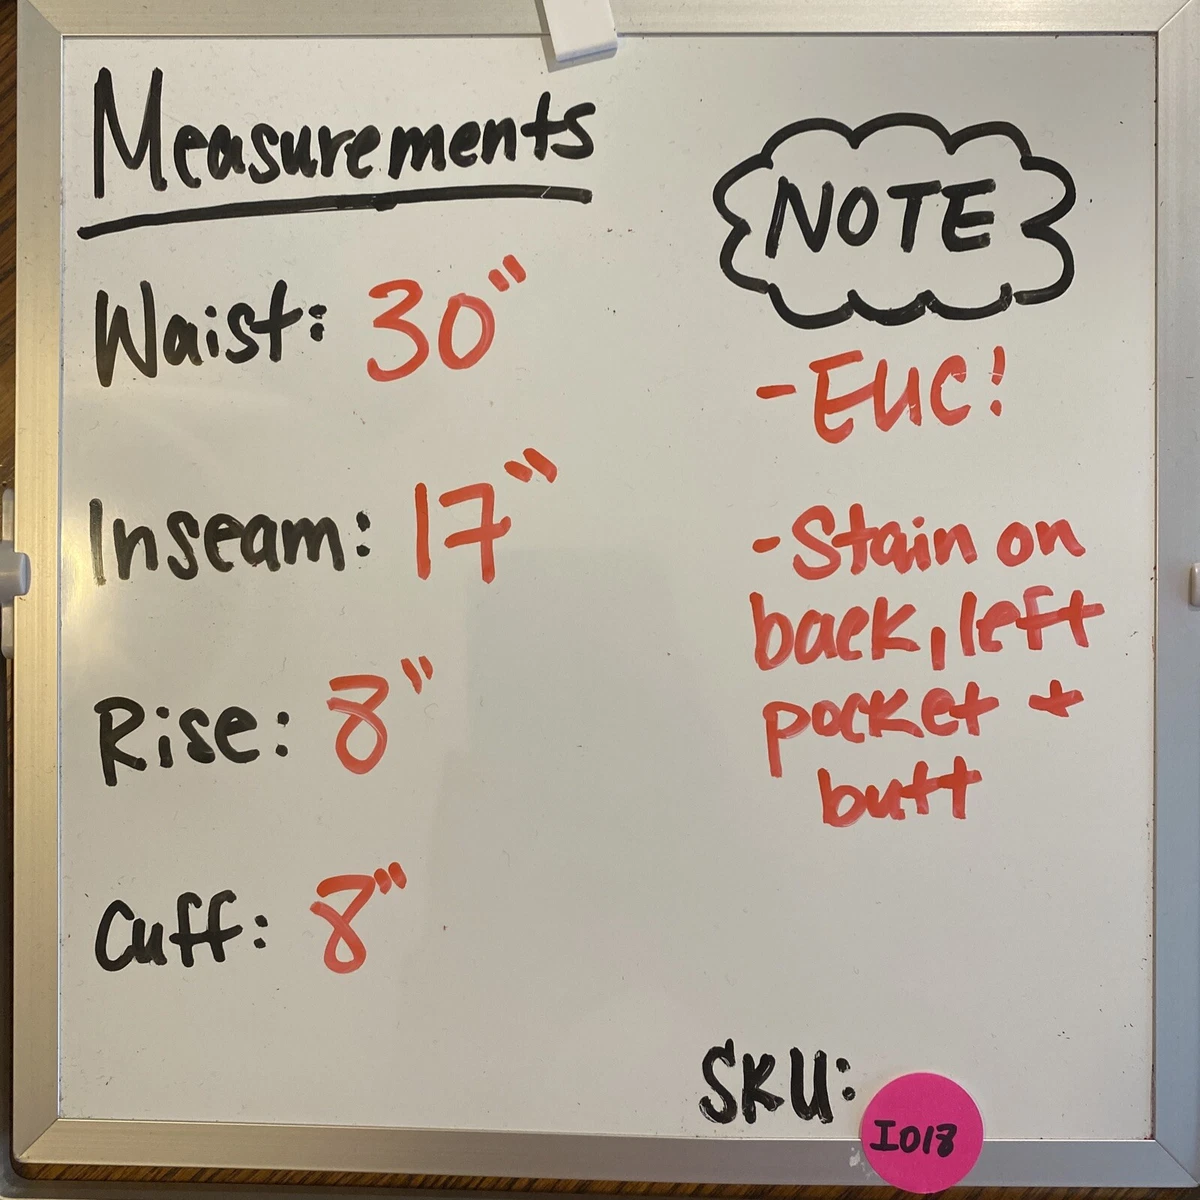 Measurements
Waist: 30"
Inseam: 17"
Rise: 8"
Cuff: 8"
NOTE
- EUC!
- Stain on
back, left
pocket +
butt
SKU:
I018